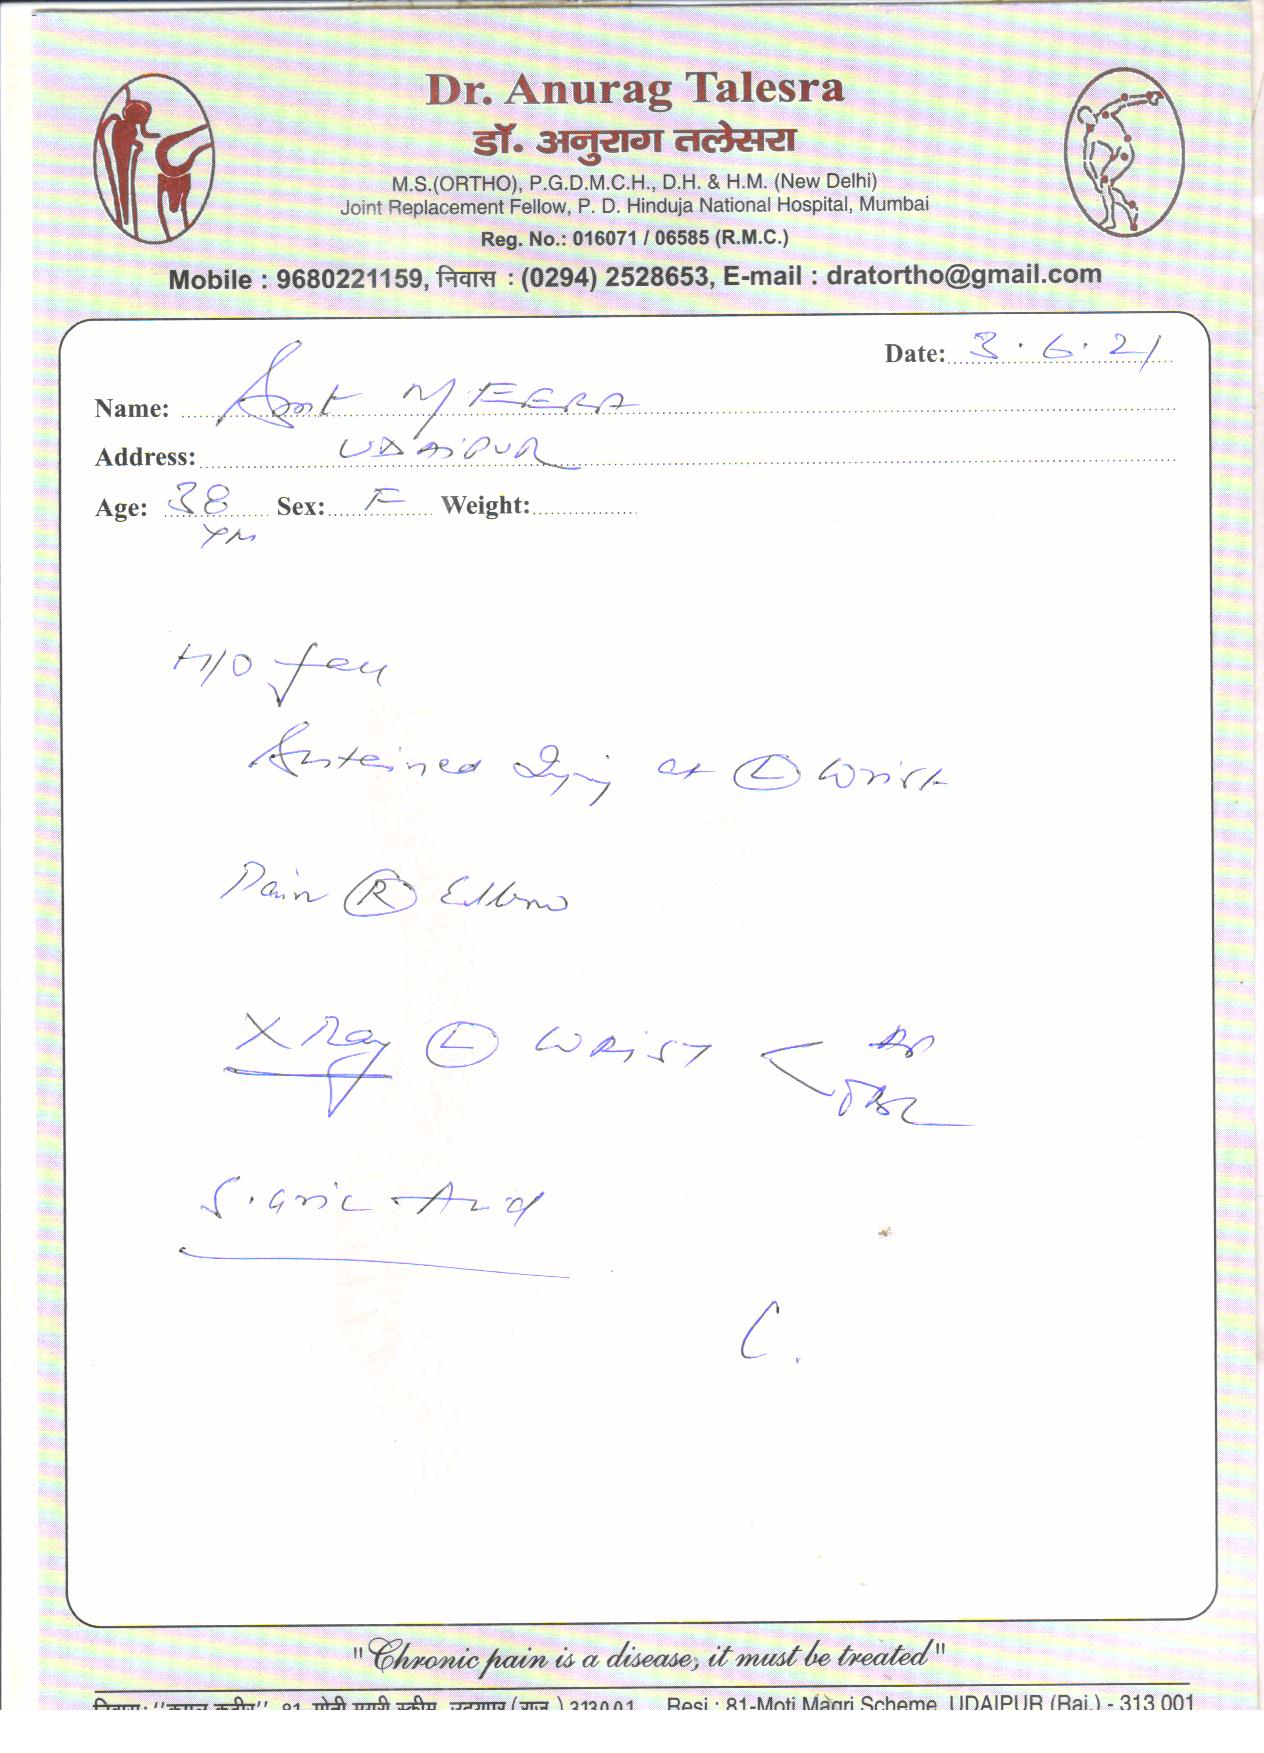 Dr. Anurag Talesra
डॉ. अनुराग तलेसरा
M.S.(ORTHO), P.G.D.M.C.H., D.H. & H.M. (New Delhi)
Joint Replacement Fellow, P. D. Hinduja National Hospital, Mumbai
Reg. No.: 016071 / 06585 (R.M.C.)
Mobile : 9680221159, निवास : (0294) 2528653, E-mail : dratortho@gmail.com
Date: 3.6.21
Name: Smt MEERA
Address: UDAIPUR
Age: 38 Sex: F Weight:
yrs
H/O fall
Sustained Injury at L Wrist
Pain R Elbow
X Ray L WRIST < AP
S. Uric Acid
"Chronic pain is a disease, it must be treated"
निवास : "कमल कुटीर", 81, मोती मगरी स्कीम, उदयपुर (राज.) 313001 Resi : 81-Moti Magri Scheme, UDAIPUR (Raj.) - 313 001